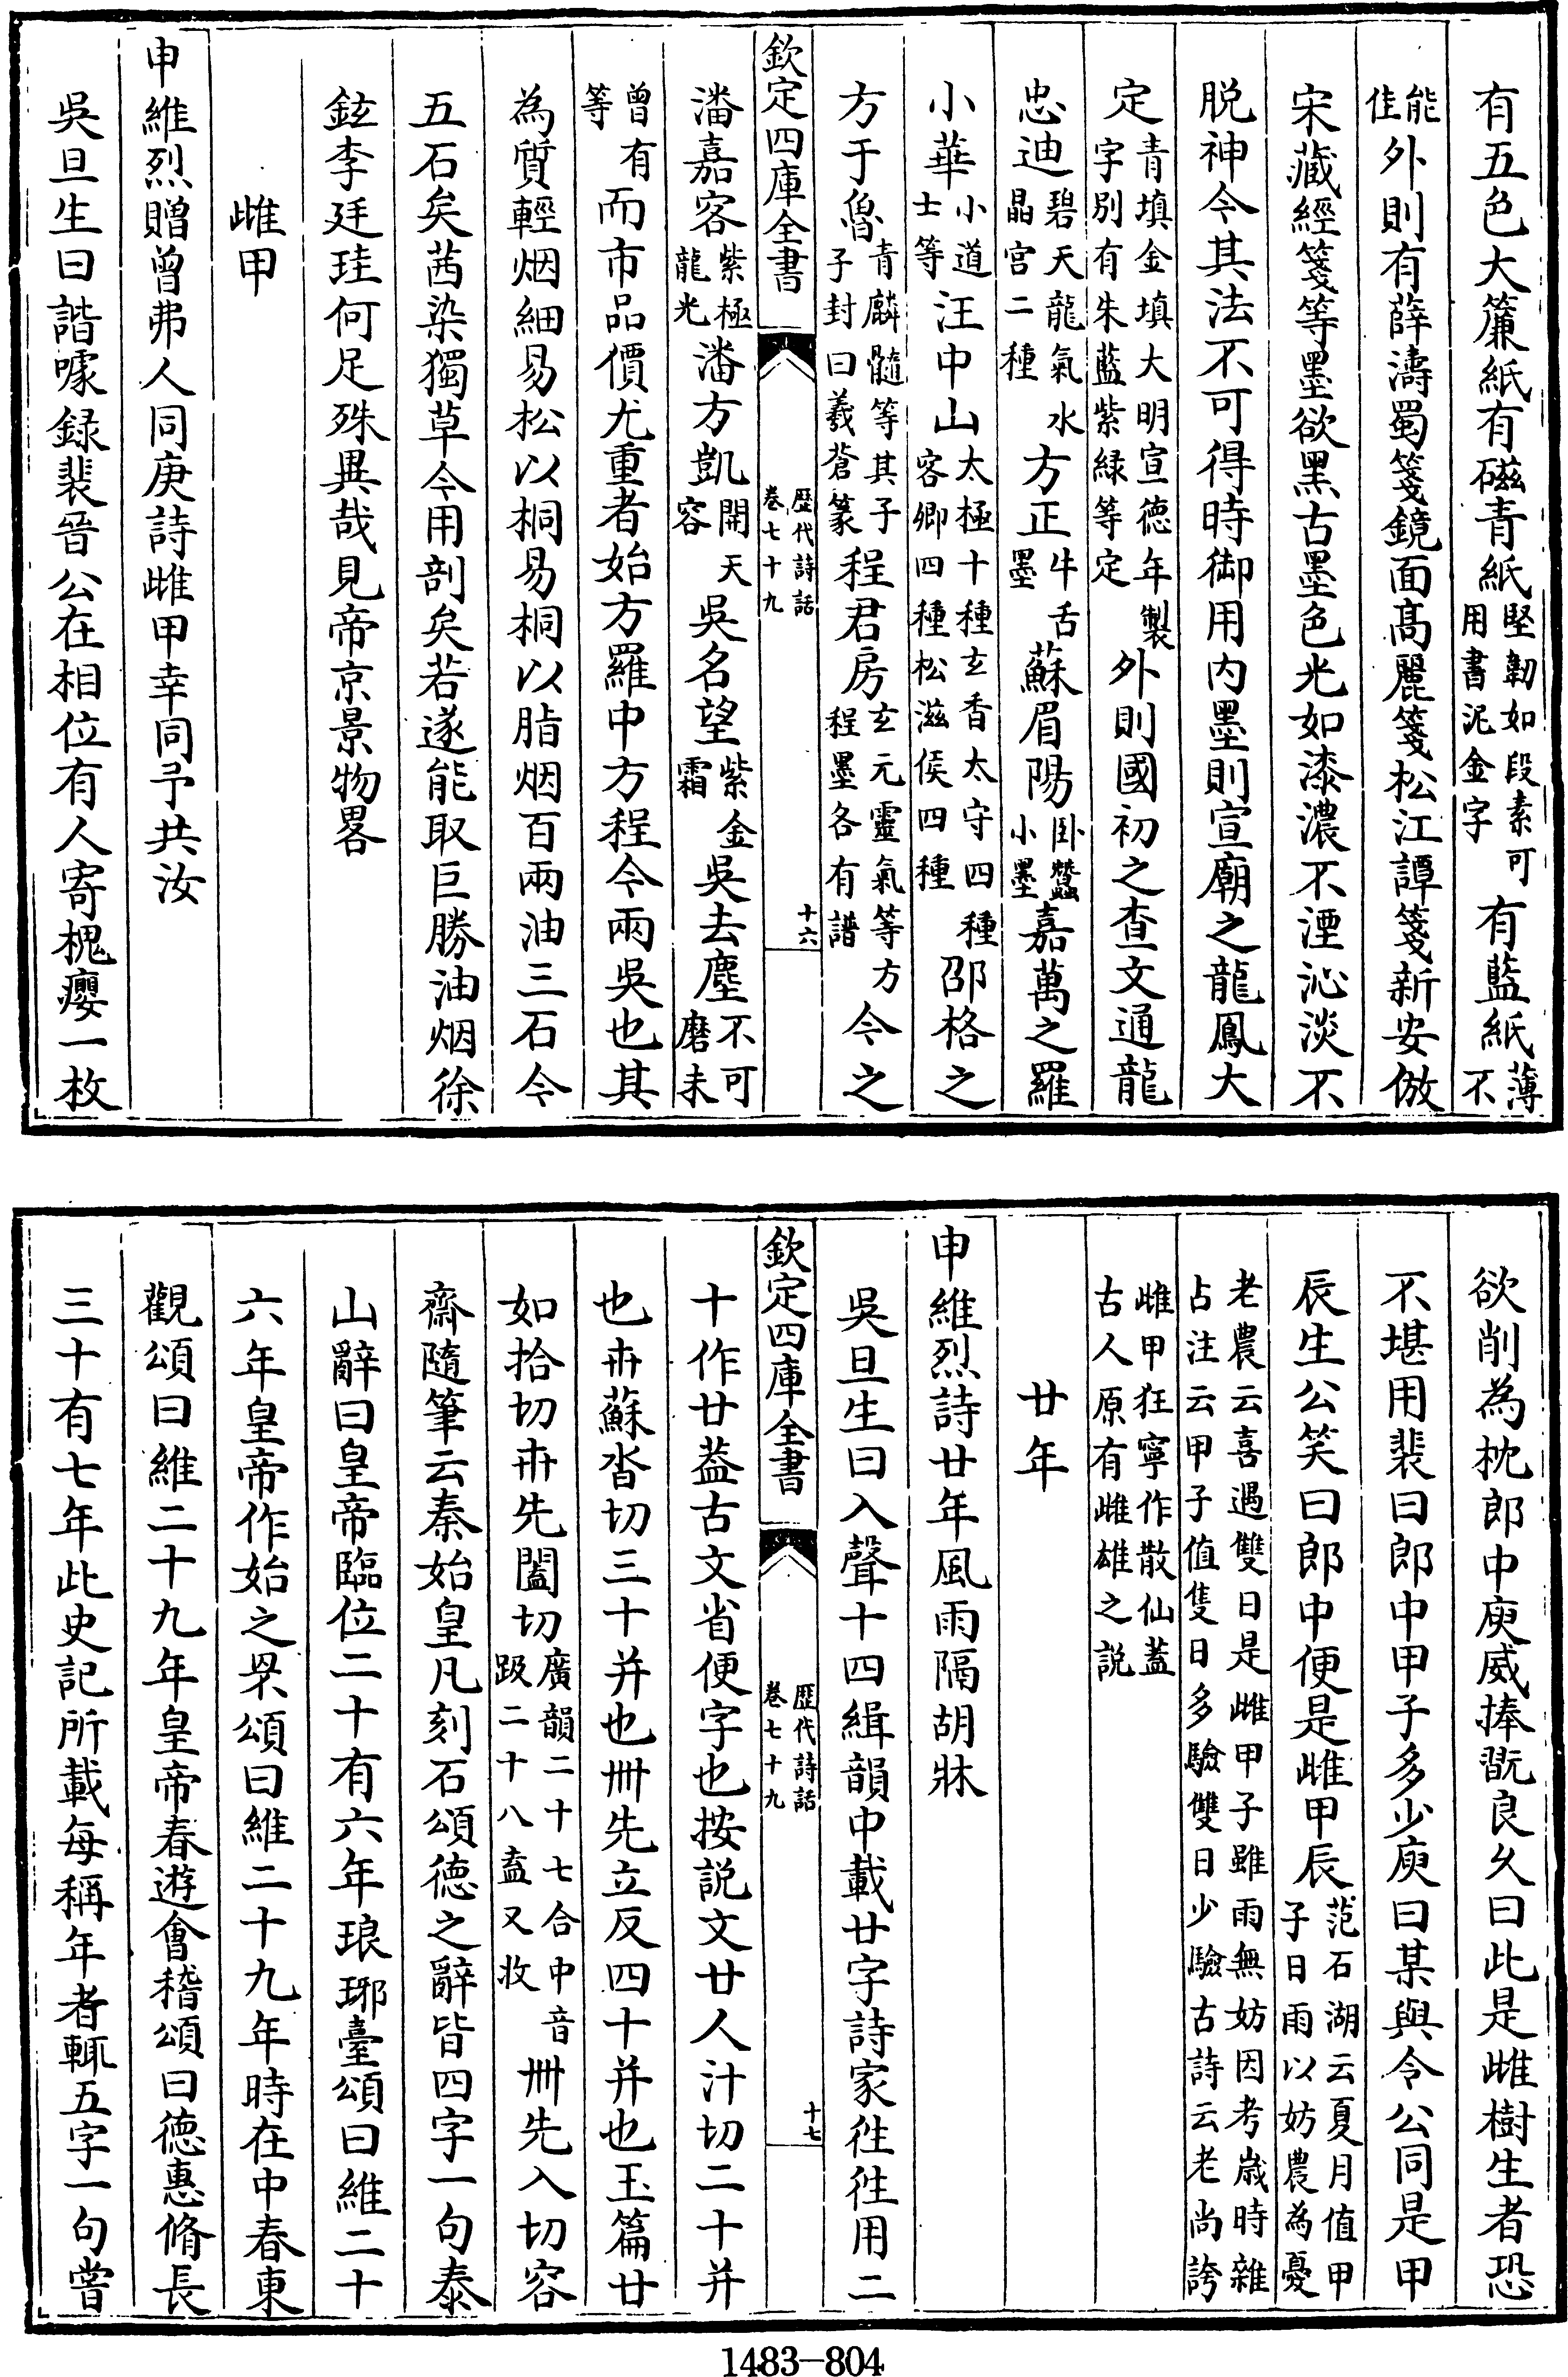 有五色大簾紙有磁青紙堅韌如段素可用書泥金字有藍紙薄不
能佳外則有薛濤蜀箋鏡面高麗箋松江譚箋新安倣
宋藏經箋等墨欲黑古墨色光如漆濃不湮沁淡不
脱神今其法不可得時御用内墨則宣廟之龍鳳大
定青填金填大明宣德年製字别有朱藍紫緑等定外則國初之查文通龍
忠迪碧天龍氣水晶宫二種方正牛舌墨蘇眉陽卧蠶小墨嘉萬之羅
小華小道士等汪中山太極十種玄香太守四種客卿四種松滋侯四種邵格之
方于魯青麟髓等其子子封曰羲蒼篆程君房玄元靈氣等方程墨各有譜今之
欽定四庫全書
歴代詩話
卷七十九
十六
潘嘉客紫極龍光潘方凱開天容吳名望紫金霜吳去塵不可磨未
曾有等而市品價尤重者始方羅中方程今兩吳也其
為質輕烟細易松以桐易桐以脂烟百兩油三石今
五石矣茜染獨草今用剖矣若遂能取巨勝油烟徐
鉉李廷珪何足殊異哉見帝京景物畧
雌甲
申維烈贈曾弗人同庚詩雌甲幸同予共汝
吳旦生曰諧噱録裴晉公在相位有人寄槐癭一枚
欲削為枕郎中庾威捧翫良久曰此是雌樹生者恐
不堪用裴曰郎中甲子多少庾曰某與令公同是甲
辰生公笑曰郎中便是雌甲辰范石湖云夏月值甲子日雨以妨農為憂
老農云喜遇雙日是雌甲子雖雨無妨因考歲時雜占注云甲子值隻日多驗雙日少驗古詩云老尚誇
雌甲狂寧作散仙蓋古人原有雌雄之説
廿年
申維烈詩廿年風雨隔胡牀
吳旦生曰入聲十四緝韻中載廿字詩家往往用二
欽定四庫全書
歴代詩話
卷七十九
十七
十作廿葢古文省便字也按説文廿人汁切二十并
也卅蘇沓切三十并也卌先立反四十并也玉篇廿
如拾切卅先闔切廣韻二十七合中音趿二十八盍又收卌先入切容
齋隨筆云秦始皇凡刻石頌德之辭皆四字一句泰
山辭曰皇帝臨位二十有六年琅琊臺頌曰維二十
六年皇帝作始之罘頌曰維二十九年時在中春東
觀頌曰維二十九年皇帝春遊會稽頌曰德惠脩長
三十有七年此史記所載每稱年者輒五字一句嘗
1483-804